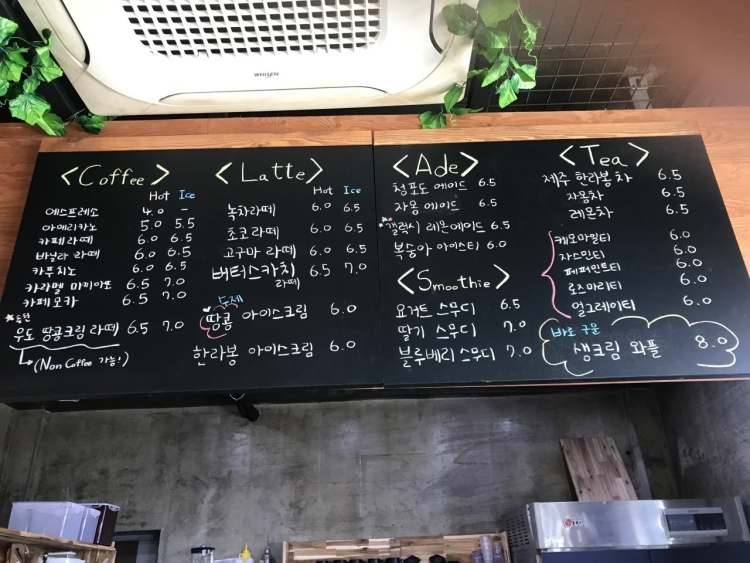 WHISEN
<Coffee>
Hot Ice
에스프레소 4.0 -
아메리카노 5.0 5.5
카페라떼 6.0 6.5
바닐라 라떼 6.0 6.5
카푸치노 6.0 6.5
카라멜 마끼아또 6.5 7.0
카페모카 6.5 7.0
추천
우도 땅콩크림 라떼 6.5 7.0
(Non Coffee 가능!)
<Latte>
Hot Ice
녹차라떼 6.0 6.5
초코라떼 6.0 6.5
고구마 라떼 6.0 6.5
버터스카치 6.5 7.0
라떼
수제
땅콩 아이스크림 6.0
한라봉 아이스크림 6.0
<Ade>
청포도 에이드 6.5
자몽 에이드 6.5
갤럭시 레몬에이드 6.5
복숭아 아이스티 6.0
<Smoothie>
요거트 스무디 6.5
딸기 스무디 7.0
블루베리 스무디 7.0
<Tea>
제주 한라봉차 6.5
자몽차 6.5
레몬차 6.5
캐모마일티 6.0
자스민티 6.0
페퍼민트티 6.0
로즈마리티 6.0
얼그레이티 6.0
바로 구운
생크림 와플 8.0